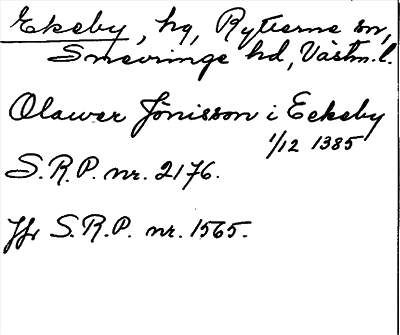 Ekeby, hg, Rytterne sn,
Snevringe hd, Västm.l.
Olawer Jönisson i Eekeby
1/12 1385
S.R.P. nr. 2176.
Jfr S.R.P. nr. 1565.